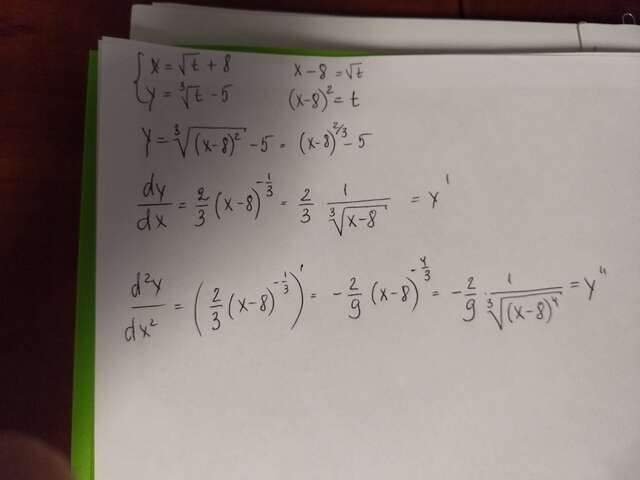 { x = √t + 8 x – 8 = √t
y = ∛t – 5 (x–8)² = t
y = ∛(x–8)² – 5 = (x–8)^2/3 – 5
dy/dx = 2/3 (x–8)^-1/3 = 2/3 1/∛(x–8) = y'
d²y/dx² = (2/3 (x–8)^-1/3)' = –2/9 (x–8)^-4/3 = –2/9 · 1/∛(x–8)⁴ = y''